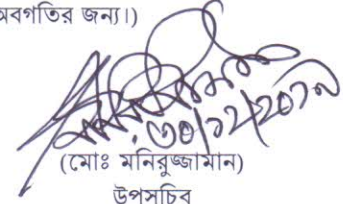 অবগতির জন্য।)
৩০/১২/২০১৭
(মোঃ মনিরুজ্জামান)
উপসচিব